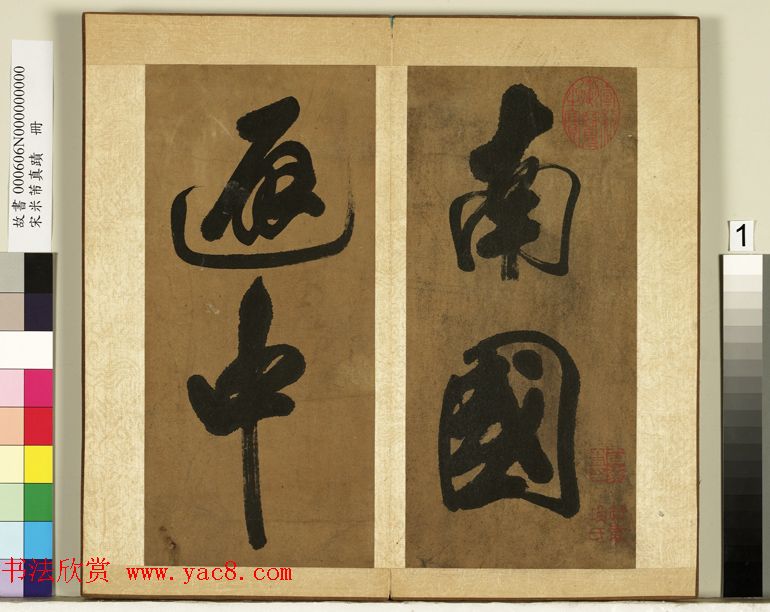 南國
中
故書 000606N000000000
宋米芾真蹟 冊
1
书法欣赏 www.yac8.com